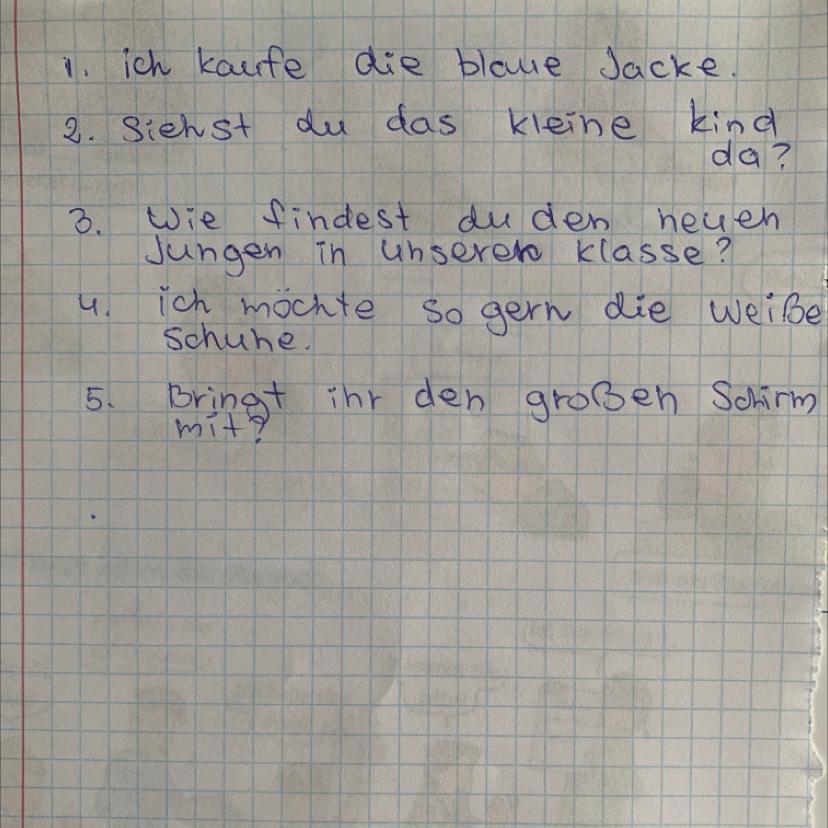 1. ich kaufe die blaue Jacke.
2. Siehst du das kleine kind
da?
3. Wie findest du den neuen
Jungen in unseren klasse?
4. ich möchte so gern die weiße
Schuhe.
5. Bringt ihr den großen Schirm
mit?